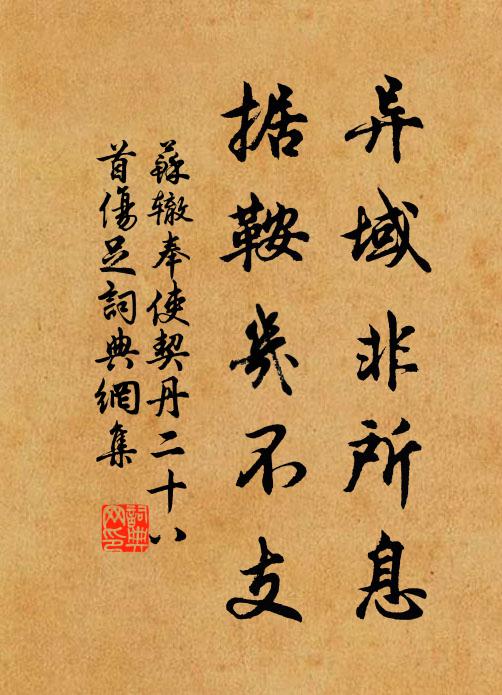 异域非所息
据鞍几不支
蘇辙奉使契丹二十八
首傷足詞典網集
詞典网印